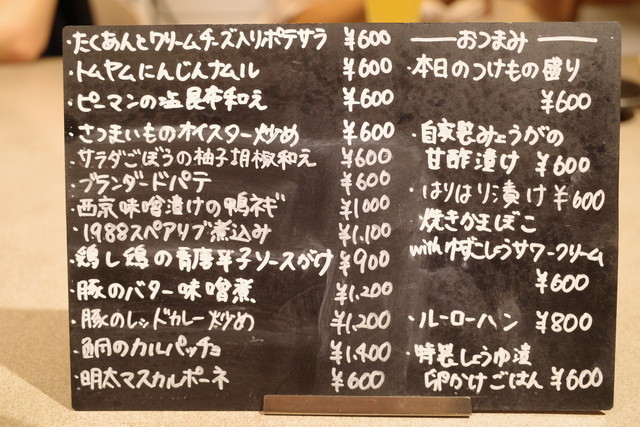 ・たくあんとクリームチーズ入りポテサラ ¥600
・トムヤムにんじんナムル ¥600
・ピーマンの塩昆布和え ¥600
・さつまいものオイスター炒め ¥600
・サラダごぼうの柚子胡椒和え ¥600
・ブランダードパテ ¥600
・西京味噌漬けの鴨ネギ ¥1000
・1988スペアリブ煮込み ¥1,100
・蒸し鶏の青唐辛子ソースがけ ¥900
・豚のバター味噌煮 ¥1,200
・豚のレッドカレー炒め ¥1,200
・鯛のカルパッチョ ¥1,400
・明太マスカルポーネ ¥600
おつまみ
・本日のつけもの盛り
¥600
・自家製みょうがの
甘酢漬け ¥600
・はりはり漬け ¥600
・焼きかまぼこ
withゆずこしょうサワークリーム
¥600
・ルーローハン ¥800
・特製しょうゆ漬
卵かけごはん ¥600